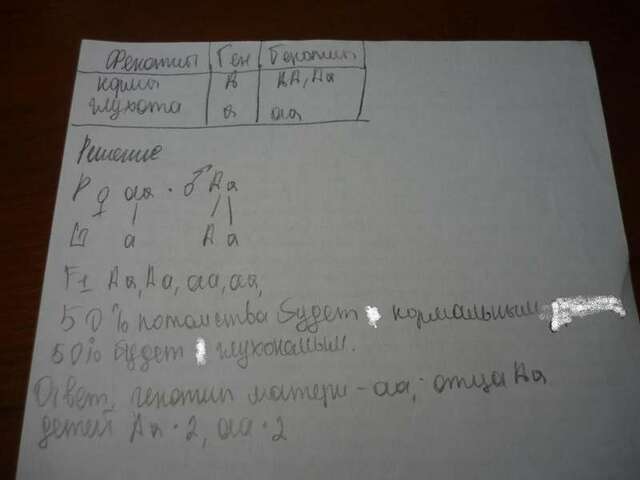 Фенотипы Ген Генотипы
норма А АА, Аа
глухота а аа
Решение
P ♀ аа · ♂ Аа
G а А а
F1 Аа, Аа, аа, аа,
50% потомства будет нормальным
50% будет глухонемым.
Ответ, генотип матери - аа; отца Аа
детей Аа · 2, аа · 2